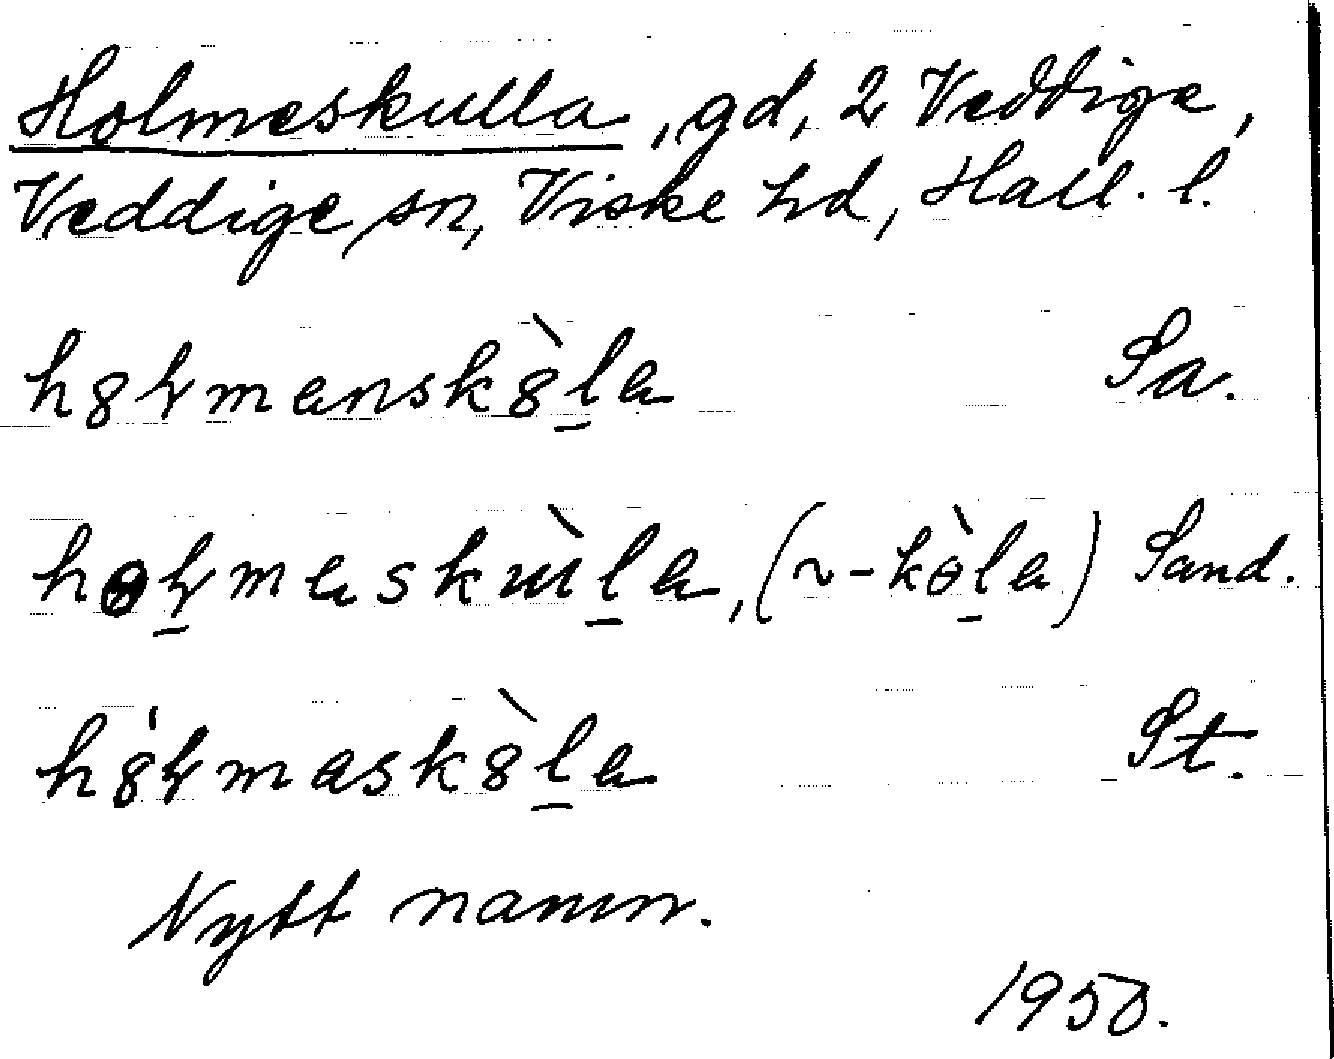 Holmeskulla, gd, 2 Veddige,
Veddige sn, Viske hd, Hall. l.
h8ɽmansk 8̀l̠a Sa.
hoɽ̠maskɯ̀l̠a, (~-kòl̠a) Sand.
h8́ɽmask8̀l̠a St.
Nytt namn.
1950.